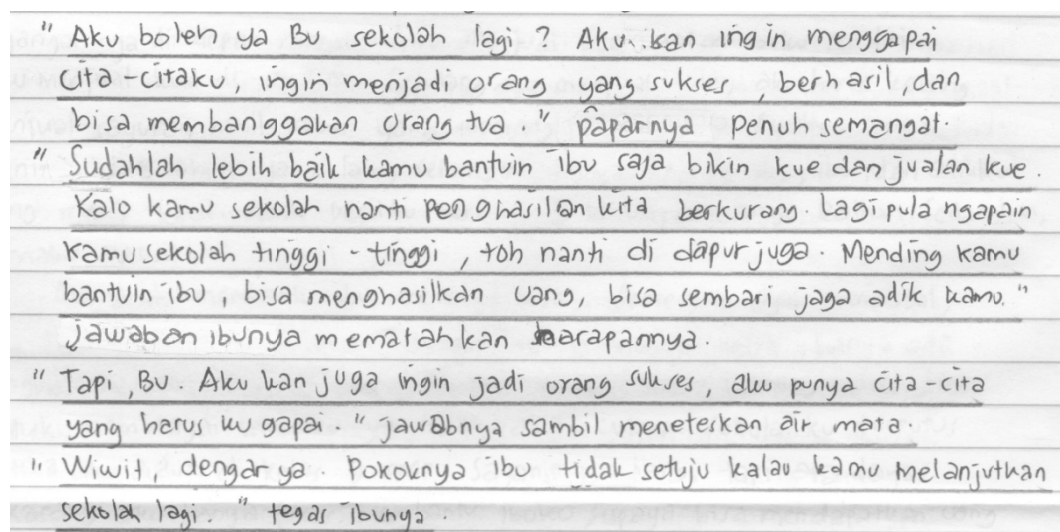 " Aku boleh ya Bu sekolah lagi ? Aku kan ingin menggapai
cita - citaku , ingin menjadi orang yang sukses , berhasil, dan
bisa membanggakan orang tua " paparnya penuh semangat.
" Sudahlah lebih baik kamu bantuin ibu saja bikin kue dan jualan kue .
Kalo kamu sekolah nanti penghasilan kita berkurang Lagi pula ngapain
kamu sekolah tinggi - tinggi , toh nanti di dapur juga . Mending kamu
bantuin ibu bisa menghasilkan uang, bisa sembari jaga adik kamu. "
jawaban ibunya mematahkan harapannya .
" Tapi , Bu . Aku kan juga ingin jadi orang sukses, aku punya cita - cita
yang harus ku gapai " jawabnya sambil meneteskan air mata
" Wiwit, dengar ya . Pokoknya ibu tidak setuju kalau kamu melanjutkan
sekolah lagi. " tegas ibunya .